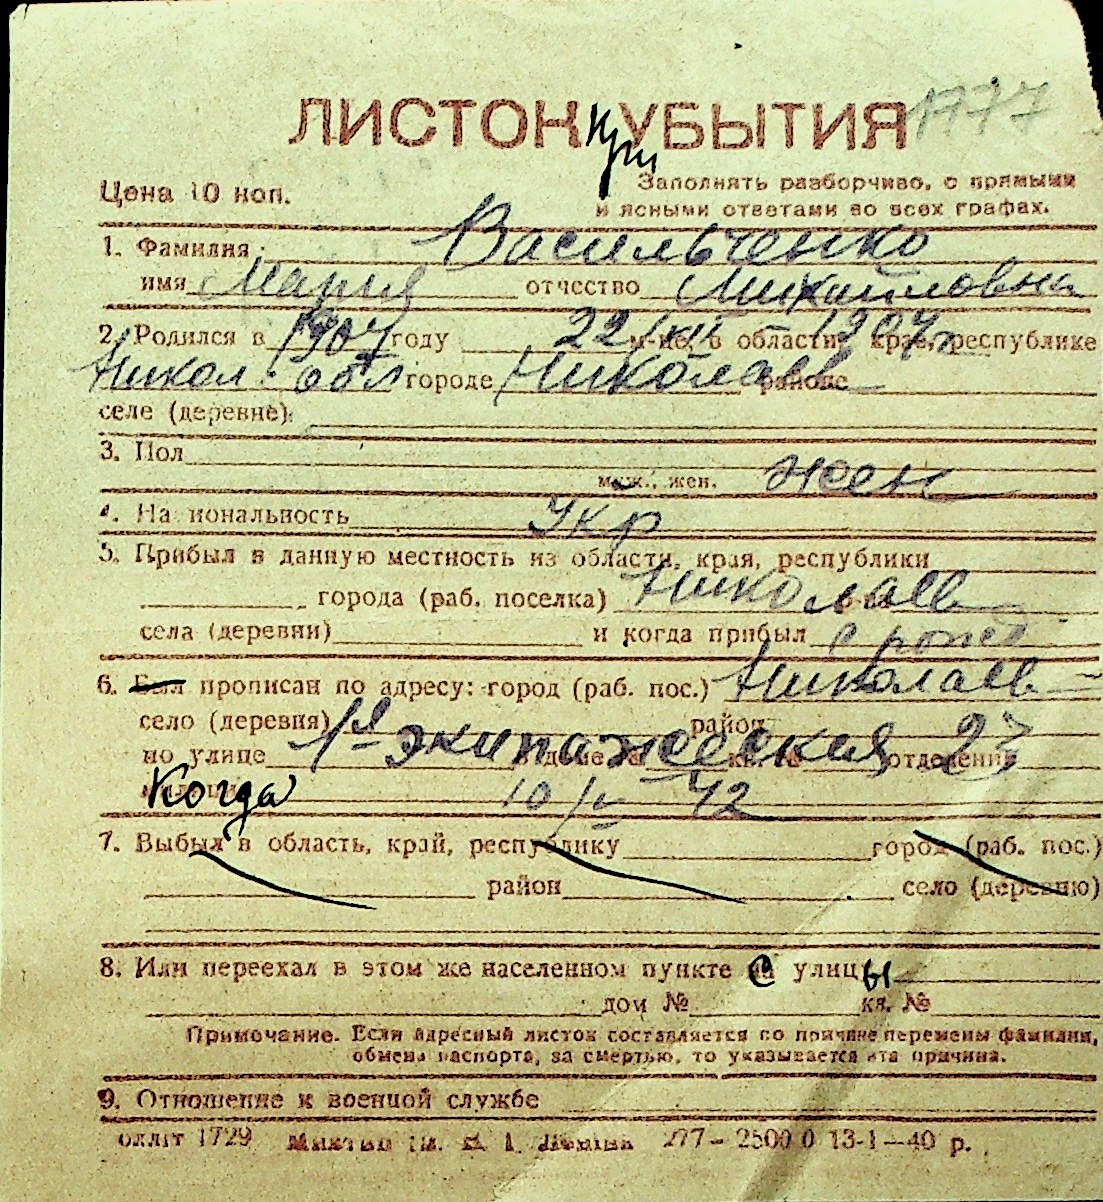 ЛИСТОК при УБЫТИЯ 1777
Цена 10 коп.
Заполнять разборчиво, с прямыми
и ясными ответами во всех графах.
1. Фамилия Васильченко
имя Мария отчество Михайловна
2. Родился в 1907 году 22/XII м-це, в области 1907 г крае, республике
Никол. обл городе Николаев районе
селе (деревне)
3. Пол
муж., жен. жен
4. Национальность Укр
5. Прибыл в данную местность из области, края, республики
города (раб. поселка) Николаев
села (деревни) и когда прибыл с рожд
6. Был прописан по адресу: город (раб. пос.) Николаев
село (деревня) район
по улице 1я экипажеская 23 отделения
Когда 10/IV 42
7. Выбыл в область, край, республику город (раб. пос.)
район село (деревню)
8. Или переехал в этом же населенном пункте с улицы
дом № кв. №
Примечание. Если адресный листок составляется по причине перемены фамилии,
обмена паспорта, за смертью, то указывается эта причина.
9. Отношение к военной службе
оллiт 1729 277–2500 0 13-1–40 р.